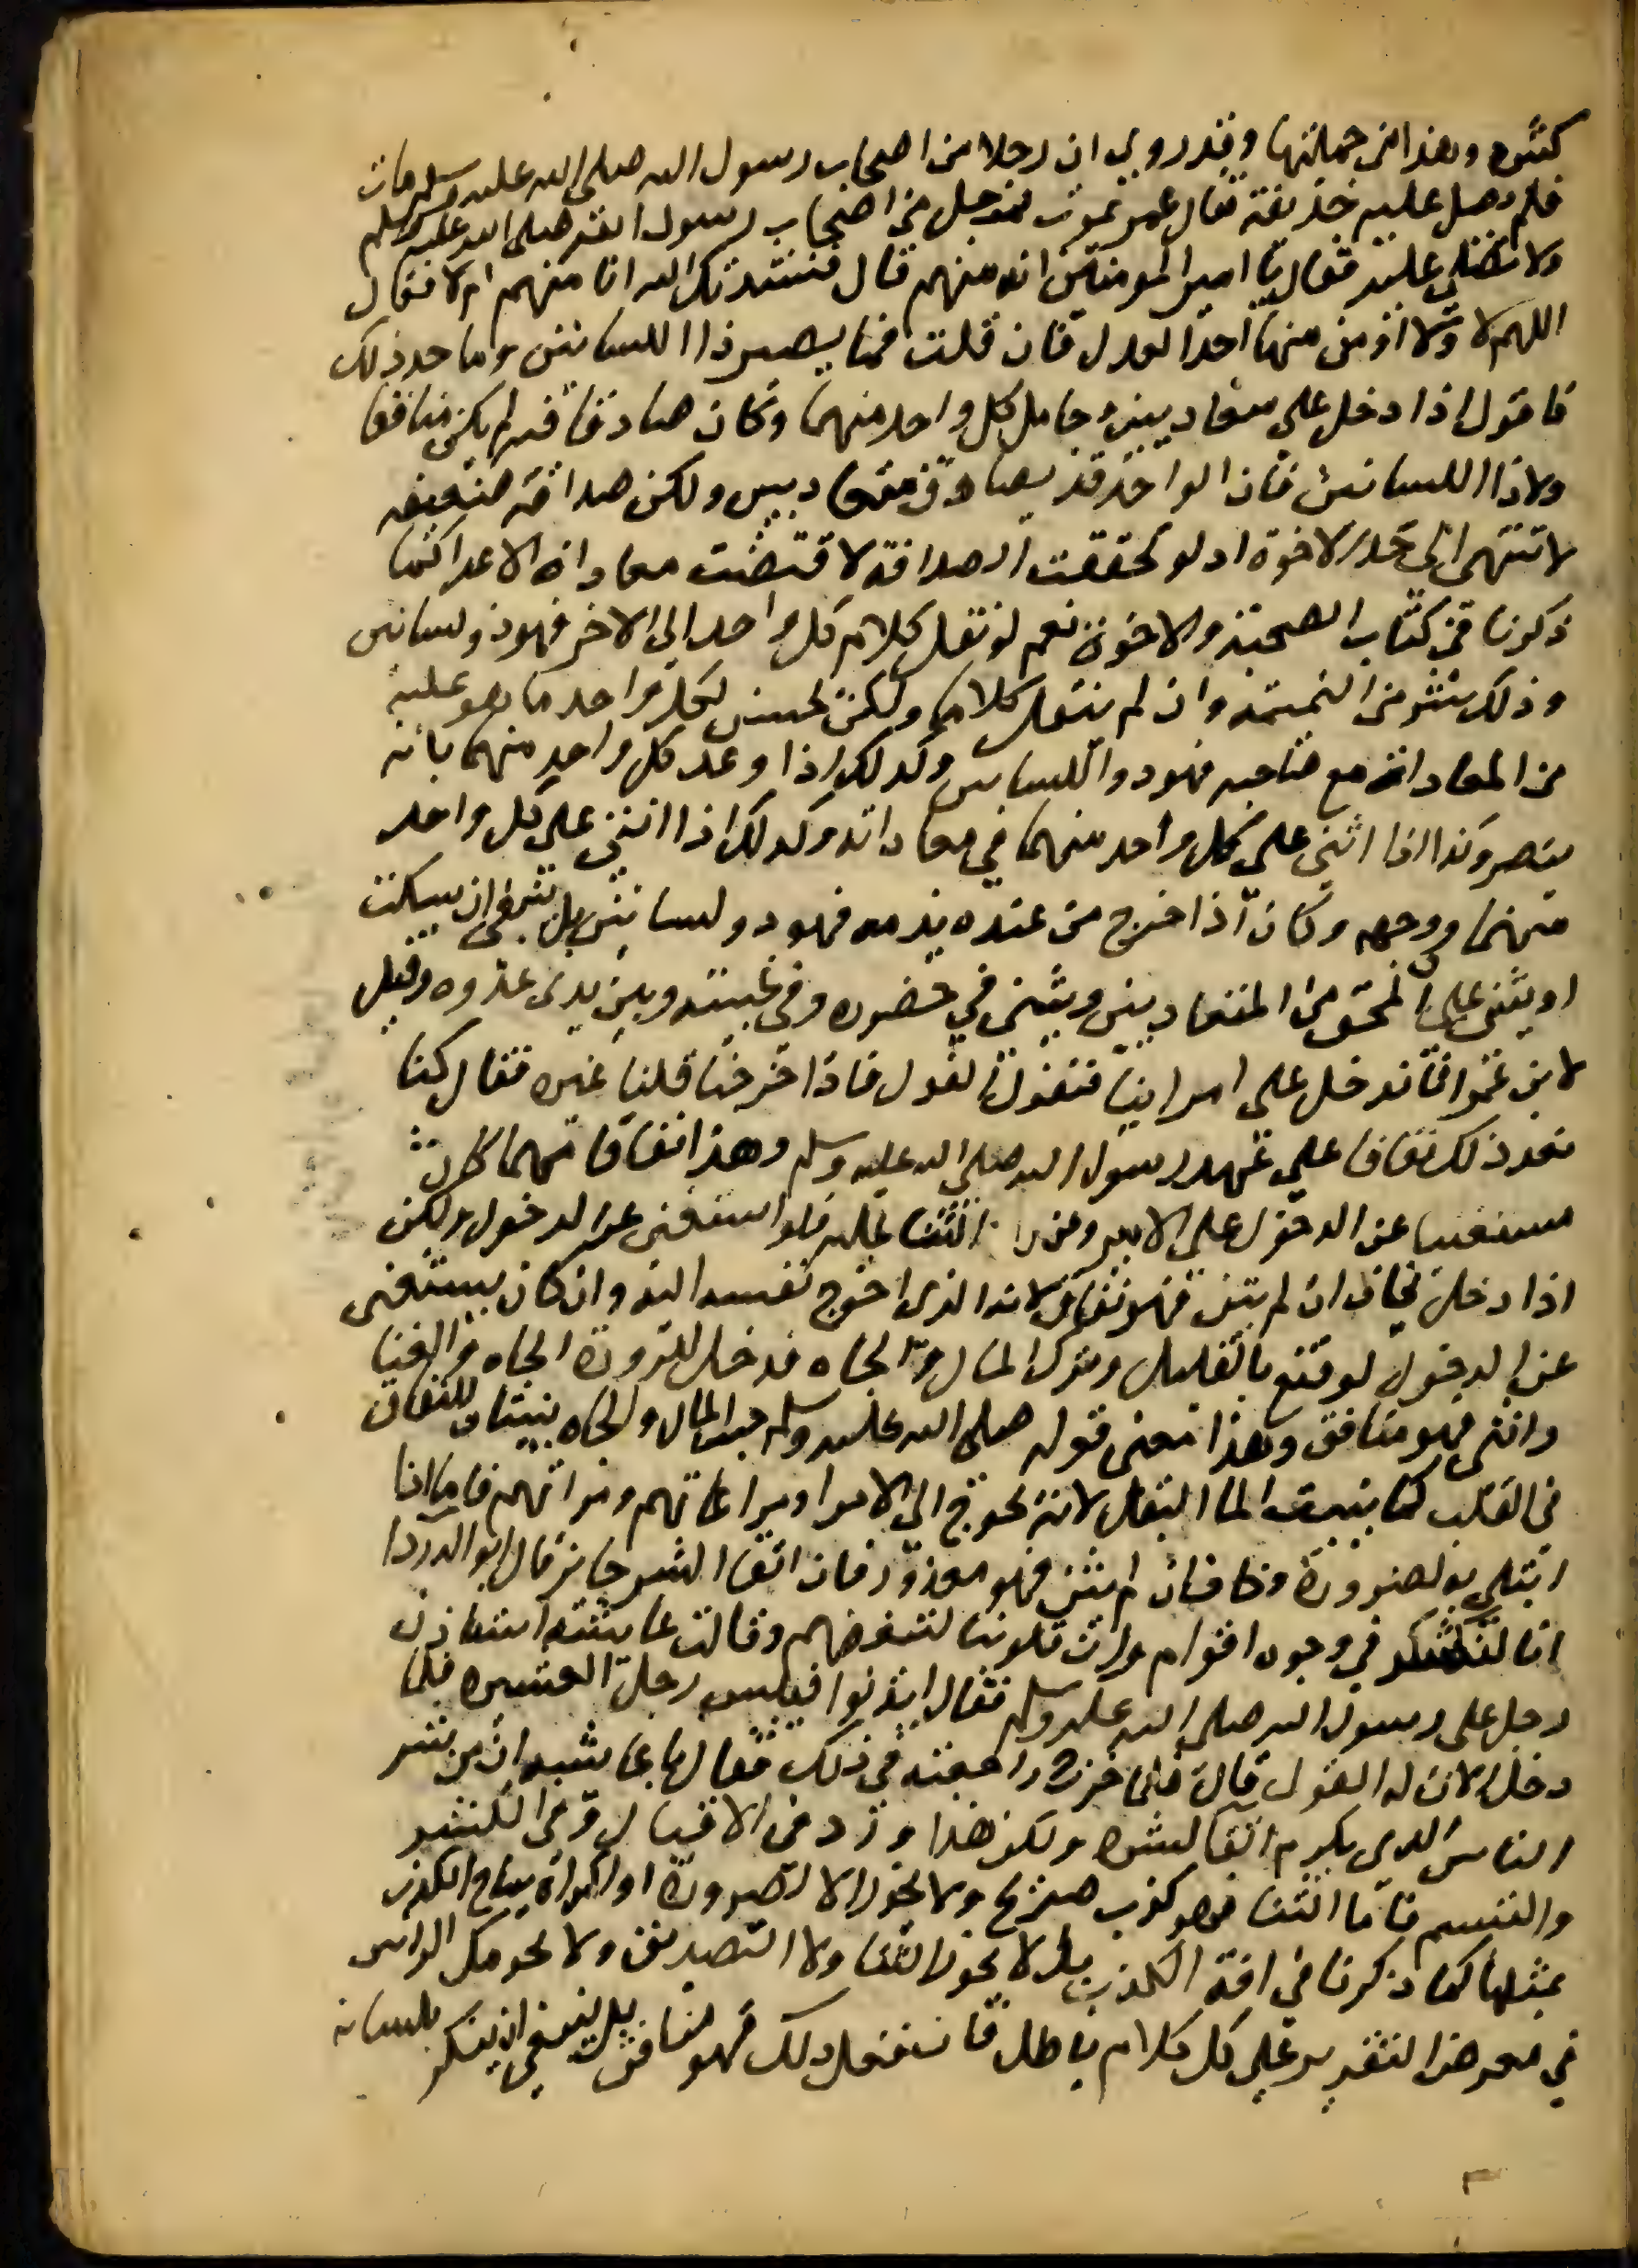 كثيره وهذا من جملتها وقد روي ان رجلا من اصحاب رسول الله صلى الله عليه وسلم مات
فلم يصل عليه حذيفة فقال عمر يموت رجل من اصحاب رسول الله صلى الله عليه وسلم
ولا تصلي عليه فقال يا امير المومنين انه منهم قال فنشدتك الله انا منهم ام لا فقال
اللهم لا ولا اومن منها احدا بعدك فان قلت فبما يصير ذا اللسانين وما حد ذلك
فاقول اذا دخل على متعاديين وجامل كل واحد منهما وكان صادقا فيه لم يكن منافقا
ولا ذا اللسانين فان الواحد قد يصادق متعاديين ولكن صداقة ضعيفه
لا تنتهي الى حد الاخوة اذ لو تحققت الصداقة لاقتضت معاداة الاعدا كما
ذكرنا في كتاب الصحبة والاخوة نعم لو نقل كلام كل واحد الى الاخر فهو ذو لسانين
وذلك شر من النميمة وان لم ينقل كلاما ولكن حسن لكل واحد ما هو عليه
من المعاداة مع صاحبه فهو ذو اللسانين وكذلك اذا وعد كل واحد منهما بانه
ينصره وكذا اذا اثنى على كل واحد منهما في معاداته وكذلك اذا اثنى على كل واحد
منهما ووجهه وكان اذا خرج من عنده يذمه فهو ذو لسانين بل ينبغي ان يسكت
او يثني على المحق من المتعاديين ويثني في حضوره وفي غيبته وبين يدي عدوه وقيل
لابن عمر انا ندخل على امراينا فنقول القول فاذا خرجنا قلنا غيره فقال كنا
نعد ذلك نفاقا على عهد رسول الله صلى الله عليه وسلم وهذا نفاقا مهما كان
مستغنيا عن الدخول على الامير وعن الثنا عليه فلو استغنى عن الدخول ولكن
اذا دخل يخاف ان لم يثن فهو نفاق لانه الذي احوج نفسه اليه وان كان يستغنى
عن الدخول لو قنع بالقليل وترك المال والجاه فدخل لضرورة الجاه والغنا
واثنى فهو منافق وهذا معنى قوله صلى الله عليه وسلم حب المال والجاه ينبتان النفاق
في القلب كما ينبت الما البقل لانه يحوج الى الامرا ومراعاتهم ومراآتهم فاما اذا
ابتلي به لضرورة وخاف ان لم يثن فهو معذور فان اتقا الشر جايز قال ابو الدردا
انا لنكشر في وجوه اقوام وان قلوبنا لتبغضهم وقالت عايشة استاذن
رجل على رسول الله صلى الله عليه وسلم فقال ايذنوا فبيس رجل العشيره فلما
دخل الان له القول قال فلما خرج راجعته في ذلك فقال يا عايشه ان من شر
الناس الذي يكرم اتقا لشره ولكن هذا ورد في الاقبال وفي الكشر
والتبسم فاما الثنا فهو كذب صريح ولا يجوز الا لضرورة او اكراه يباح الكذب
بمثلها كما ذكرنا في افة الكذب بل لا يجوز الثنا ولا التصديق ولا تحريك الراس
في معرض التقرير على كل كلام باطل فان فعل ذلك فهو منافق بل ينبغي ان ينكر بلسانه